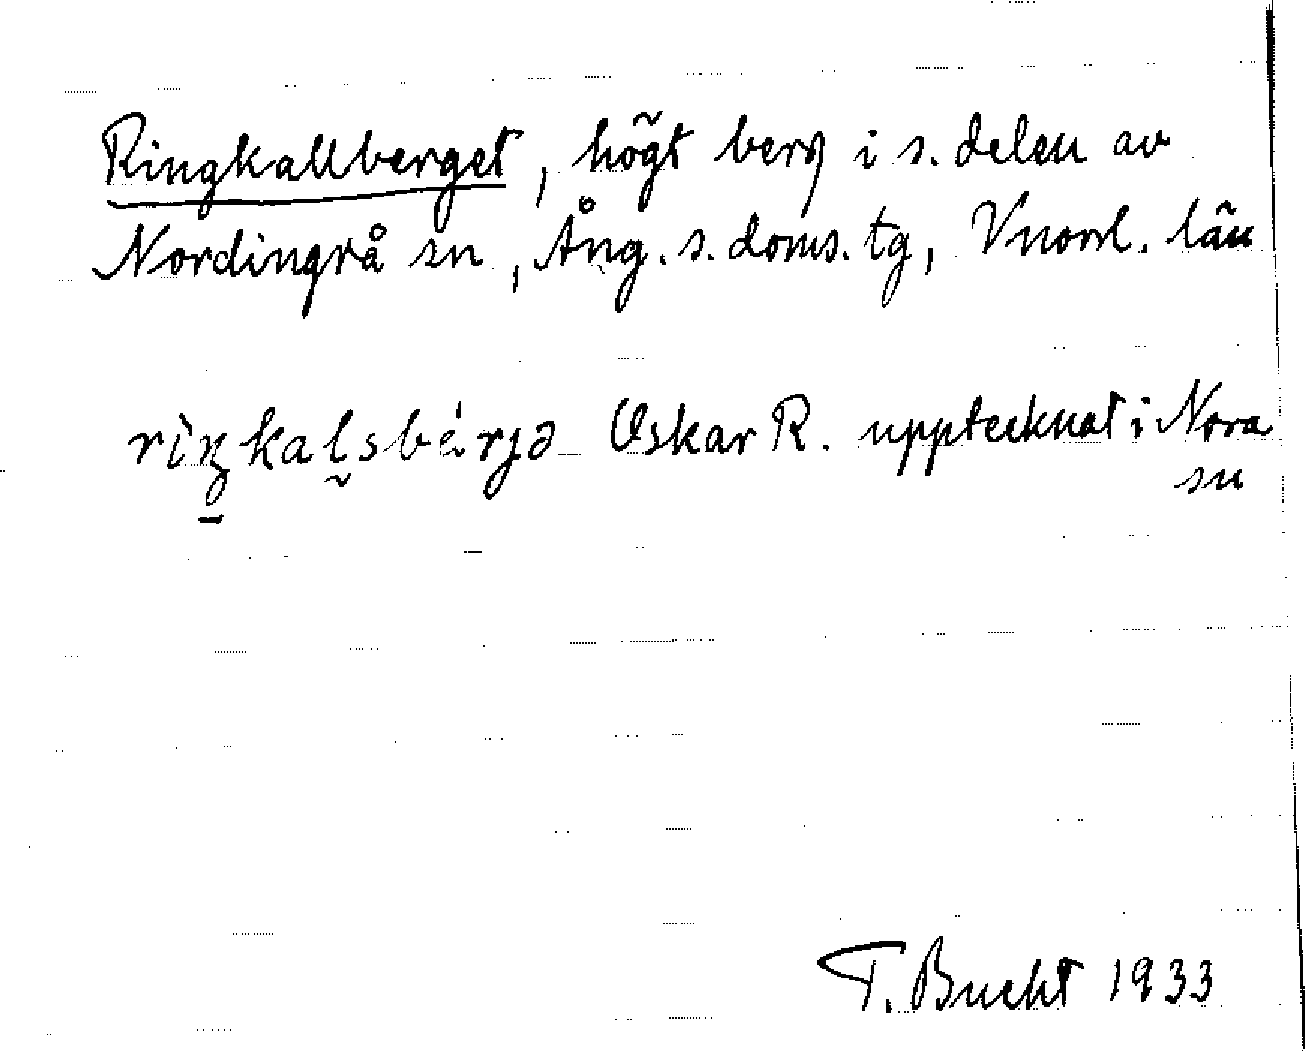 Ringkallberget, högt berg i s. delen av
Nordingrå sn, Ång. s. doms. tg, Vnorrl. län
rìŋkaḷsbérjə Oskar R. upptecknat i Nora
sn
T. Bucht 1933